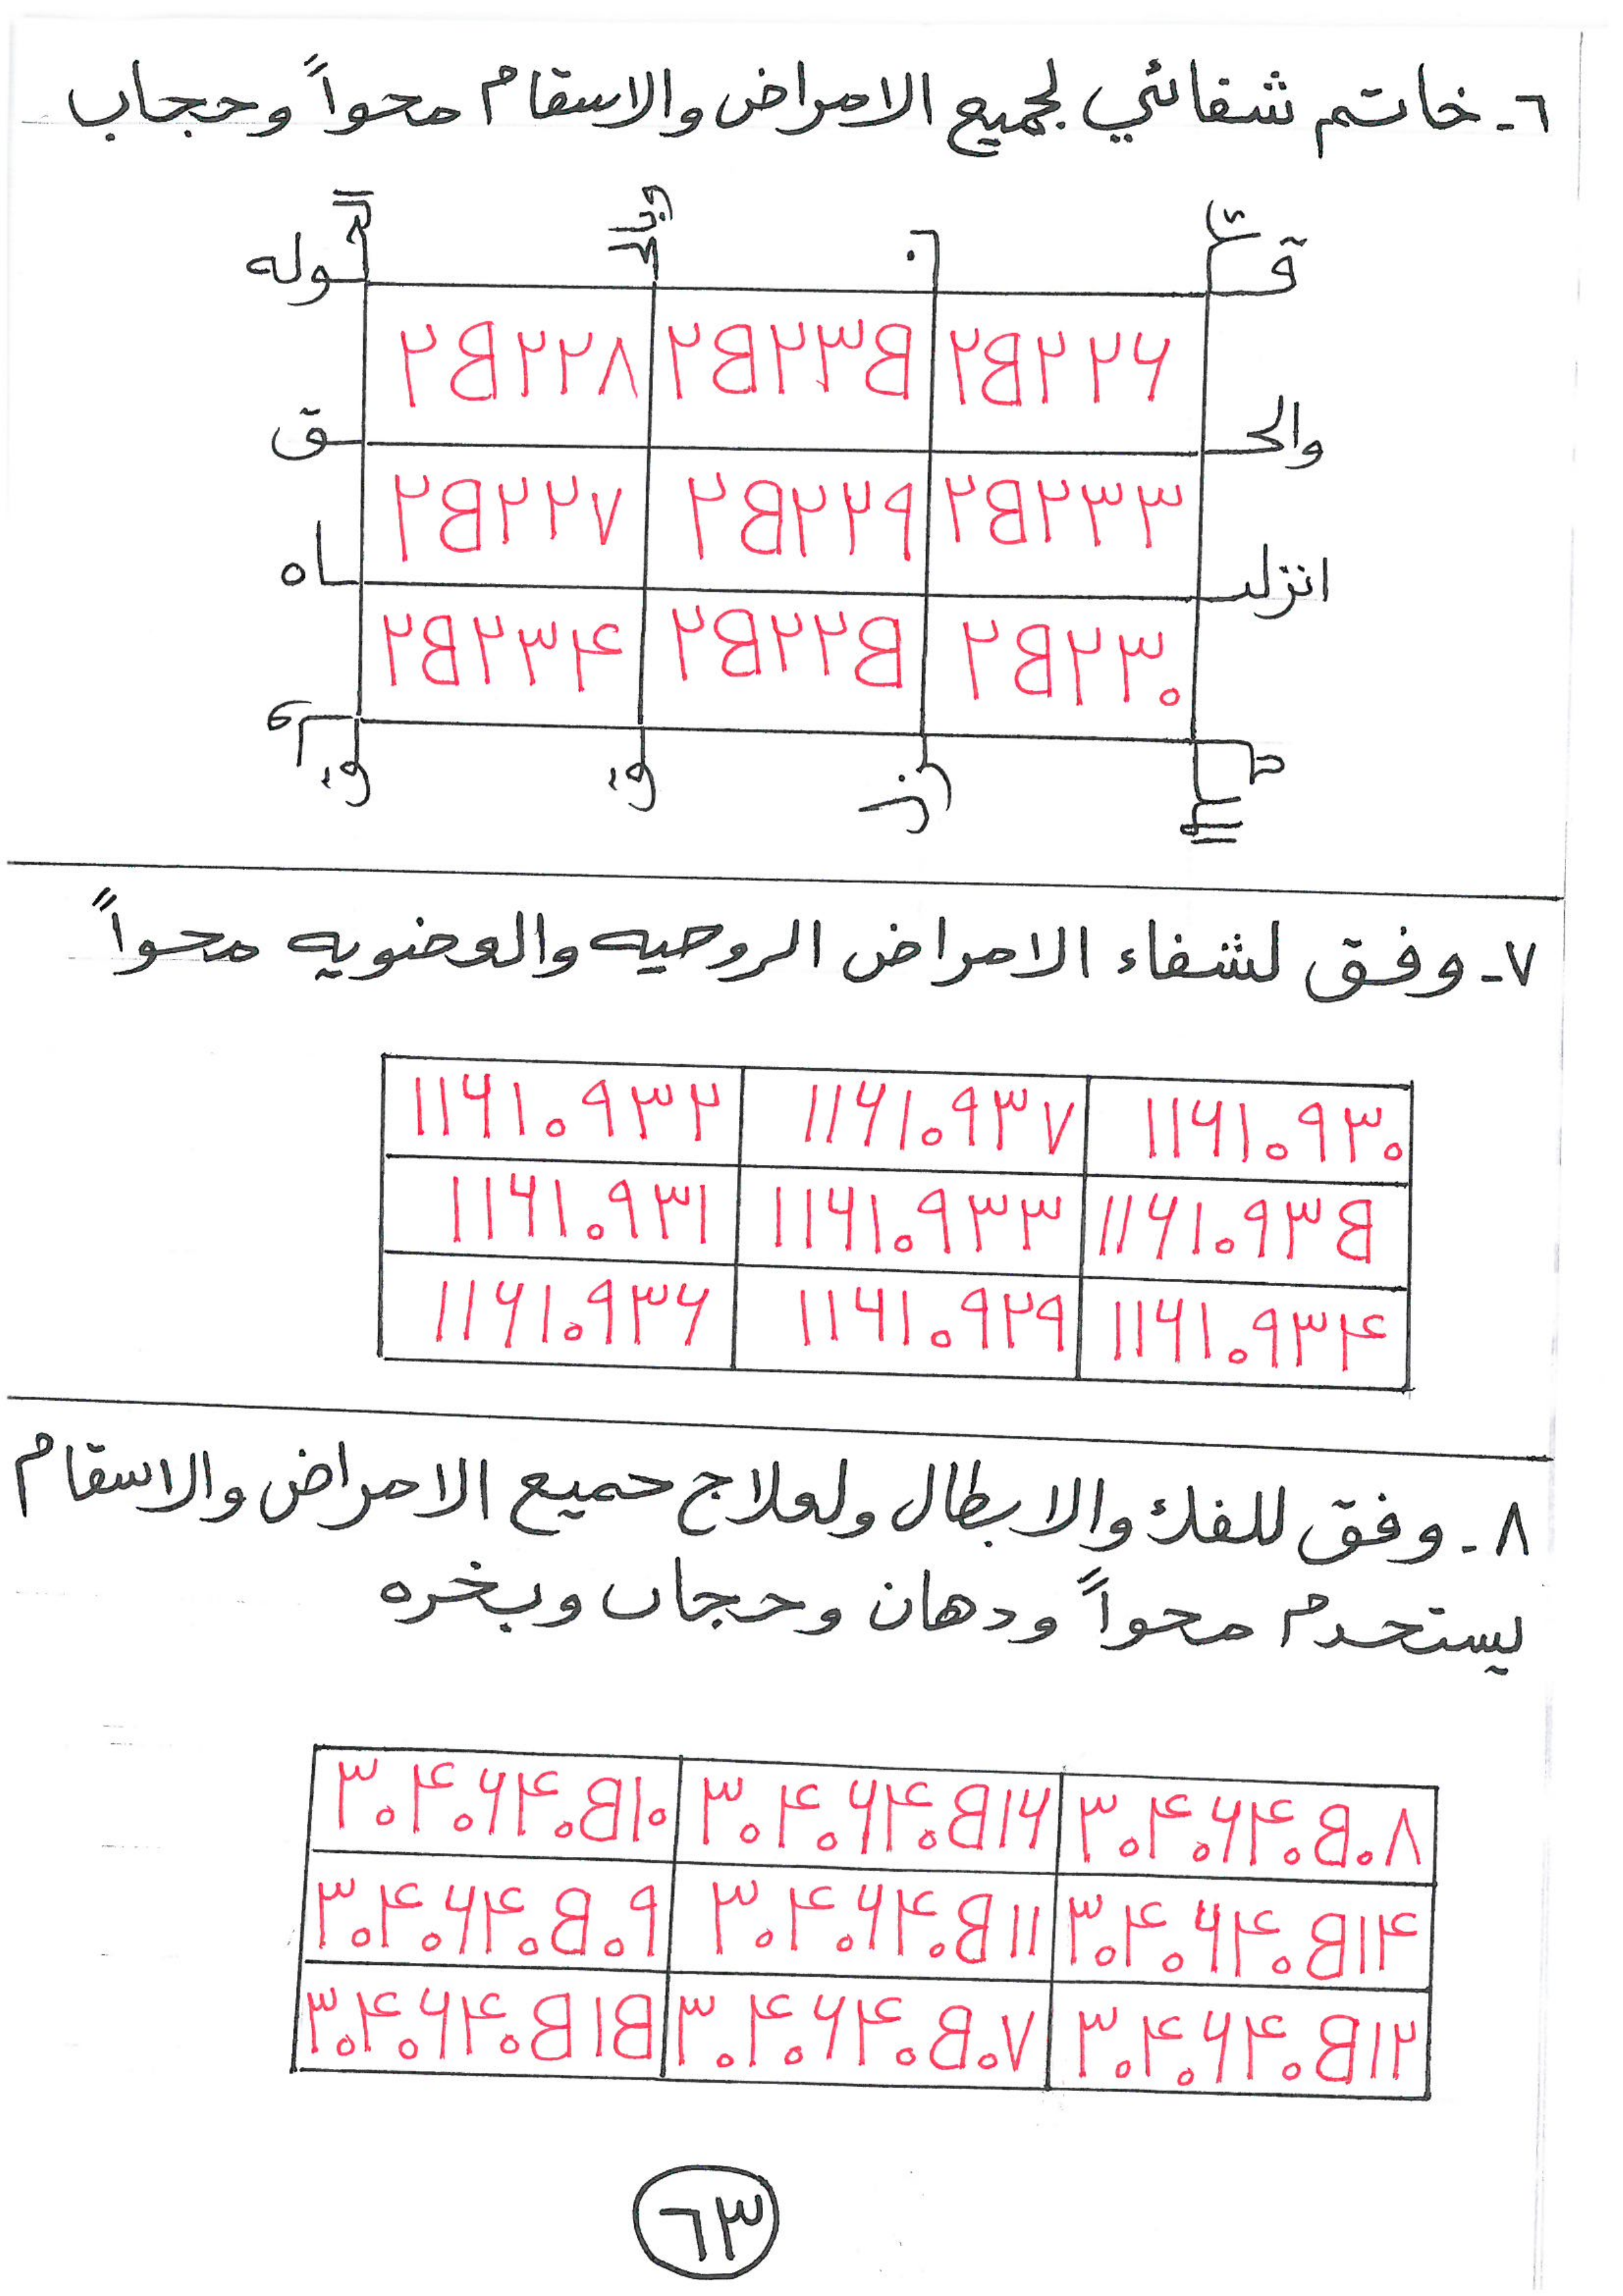 ٦- خاتم شفائي لجميع الامراض والاسقام محواً وحجاب
قـ ـوله
٢٥٢٢٦ ٢٥٢٣٥ ٢٥٢٢٨
والحـ ـق
٢٥٢٣٣ ٢٥٢٢٩ ٢٥٢٢٧
انزلنـ ـاه
٢٥٢٣٠ ٢٥٢٢٥ ٢٥٢٣٤
٧- وفق لشفاء الامراض الروحيه والعضويه محواً
١١٦١٠٩٣٠ ١١٦١٠٩٣٧ ١١٦١٠٩٣٢
١١٦١٠٩٣٥ ١١٦١٠٩٣٣ ١١٦١٠٩٣١
١١٦١٠٩٣٤ ١١٦١٠٩٢٩ ١١٦١٠٩٣٦
٨- وفق للفك والابطال ولعلاج جميع الامراض والاسقام
يستخدم محواً ودهان وحجاب وبخره
٣٠٤٠٦٤٠٥٠٨ ٣٠٤٠٦٤٠٥١٦ ٣٠٤٠٦٤٠٥١٠
٣٠٤٠٦٤٠٥١٤ ٣٠٤٠٦٤٠٥١١ ٣٠٤٠٦٤٠٥٠٩
٣٠٤٠٦٤٠٥١٢ ٣٠٤٠٦٤٠٥٠٧ ٣٠٤٠٦٤٠٥١٥
٦٣